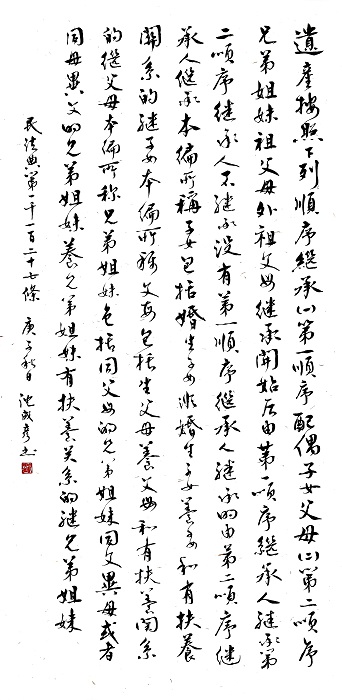 遺產按照下列順序繼承(一)第一順序配偶子女父母(二)第二順序
兄弟姐妹祖父母外祖父母繼承開始后由第一順序繼承人繼承第
二順序继承人不继承没有第一順序繼承人継承的由第二順序继
承人继承本编所稱子女包括婚生子女非婚生子女養子女和有扶養
關系的継子女本编所称父母包括生父母養父母和有扶養關系
的继父母本编所称兄弟姐妹包括同父母的兄弟姐妹同父異母或者
同母異父的兄弟姐妹養兄弟姐妹有扶養关系的継兄弟姐妹
民法典第一千一百二十七條 庚子秋日 池